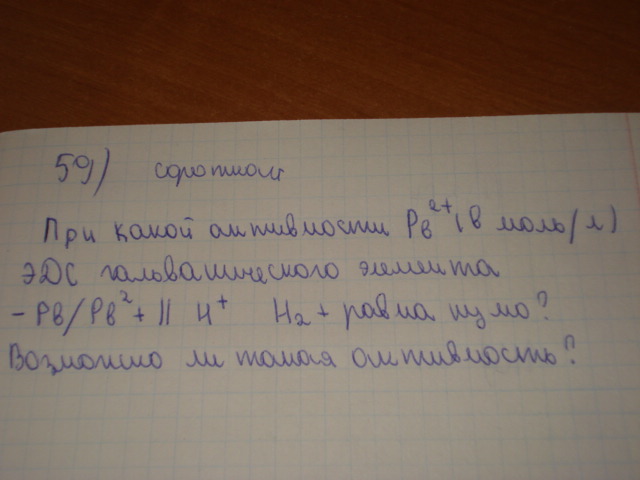 59)
При какой активности Pb²⁺(в моль/л)
ЭДС гальванического элемента
- Pb/Pb²+ || H⁺ H₂ + равна нулю?
Возможно ли такая активность?